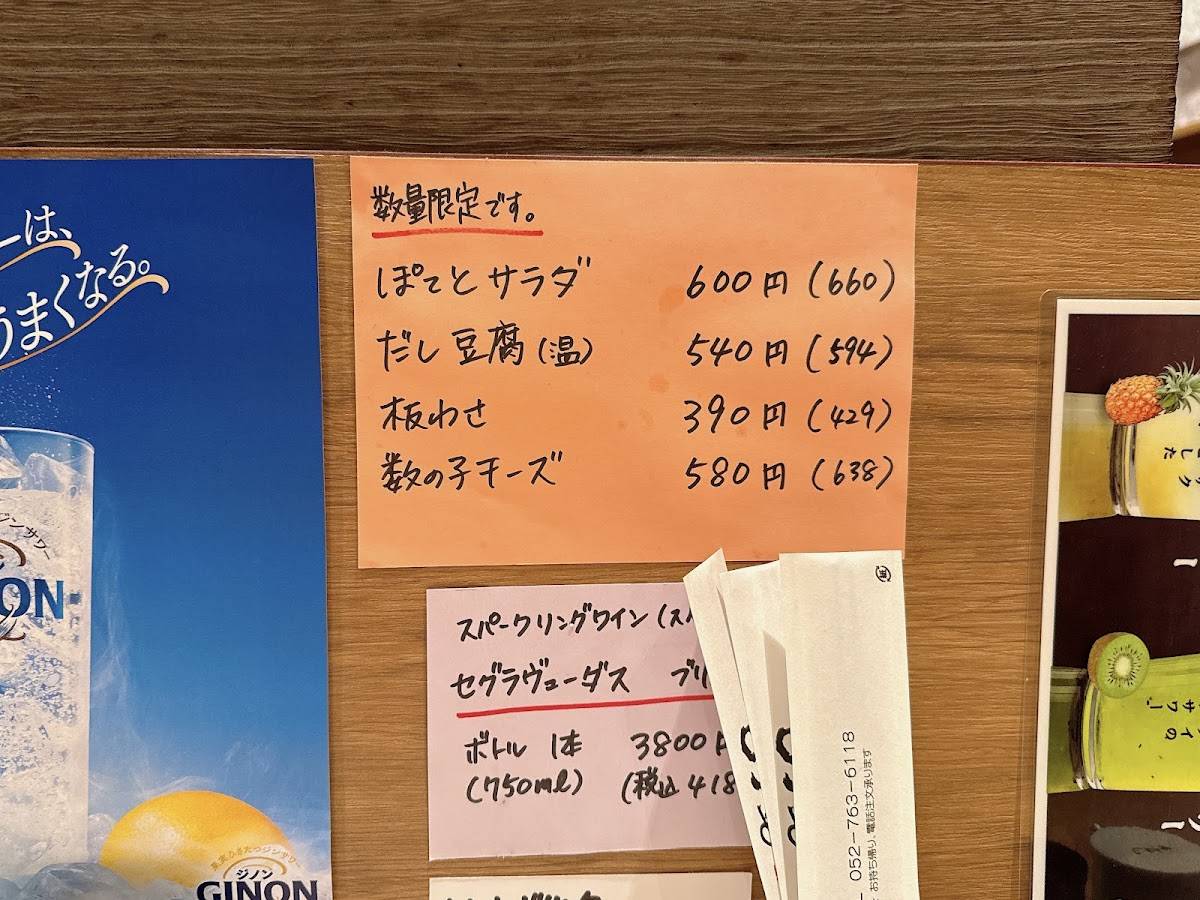 ーは、
うまくなる。
GINON
ジノン
GINON
数量限定です。
ぽてとサラダ 600円(660)
だし豆腐(温) 540円(594)
板わさ 390円(429)
数の子チーズ 580円(638)
スパークリングワイン(ス
セグラヴューダス ブリ
ボトル 1本 3800円
(750ml) (税込418
052-763-6118
お持ち帰り、電話注文承ります